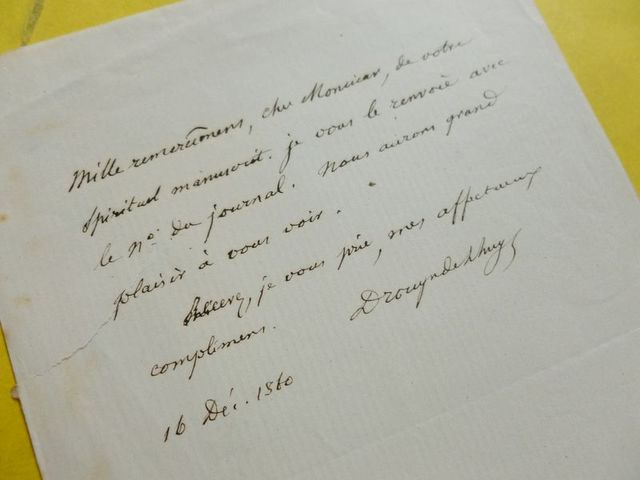 Mille remercîmens, cher Monsieur, de votre
spirituel manuscrit. je vous le renvoie avec
le No. du journal. Nous aurons grand
plaisir à vous voir.
Recevez, je vous prie, mes affectueux
complimens.
Drouyn de Lhuys
16 Déc. 1860